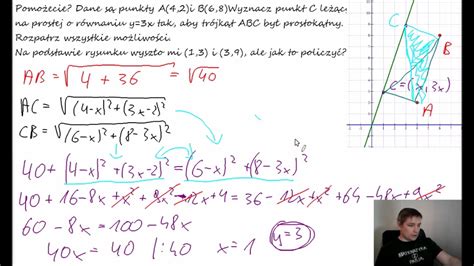 Pomożecie? Dane są punkty A(4,2)i B(6,8)Wyznacz punkt C leżąc
na prostej o równaniu y=3x tak, aby trójkąt ABC był prostokątny.
Rozpatrz wszystkie możliwości.
Na podstawie rysunku wyszło mi (1,3) i (3,9), ale jak to policzyć?
AB = √4 + 36 = √40
AC = √(4-x)² + (3x-2)²
CB = √(6-x)² + (8-3x)²
40 + (4-x)² + (3x-2)² = (6-x)² + (8-3x)²
40 + 16 - 8x + x² + 9x² - 12x + 4 = 36 - 12x + x² + 64 - 48x + 9x²
60 - 8x = 100 - 48x
40x = 40 |:40 x = 1 y = 3
B
C = (x, 3x)
A